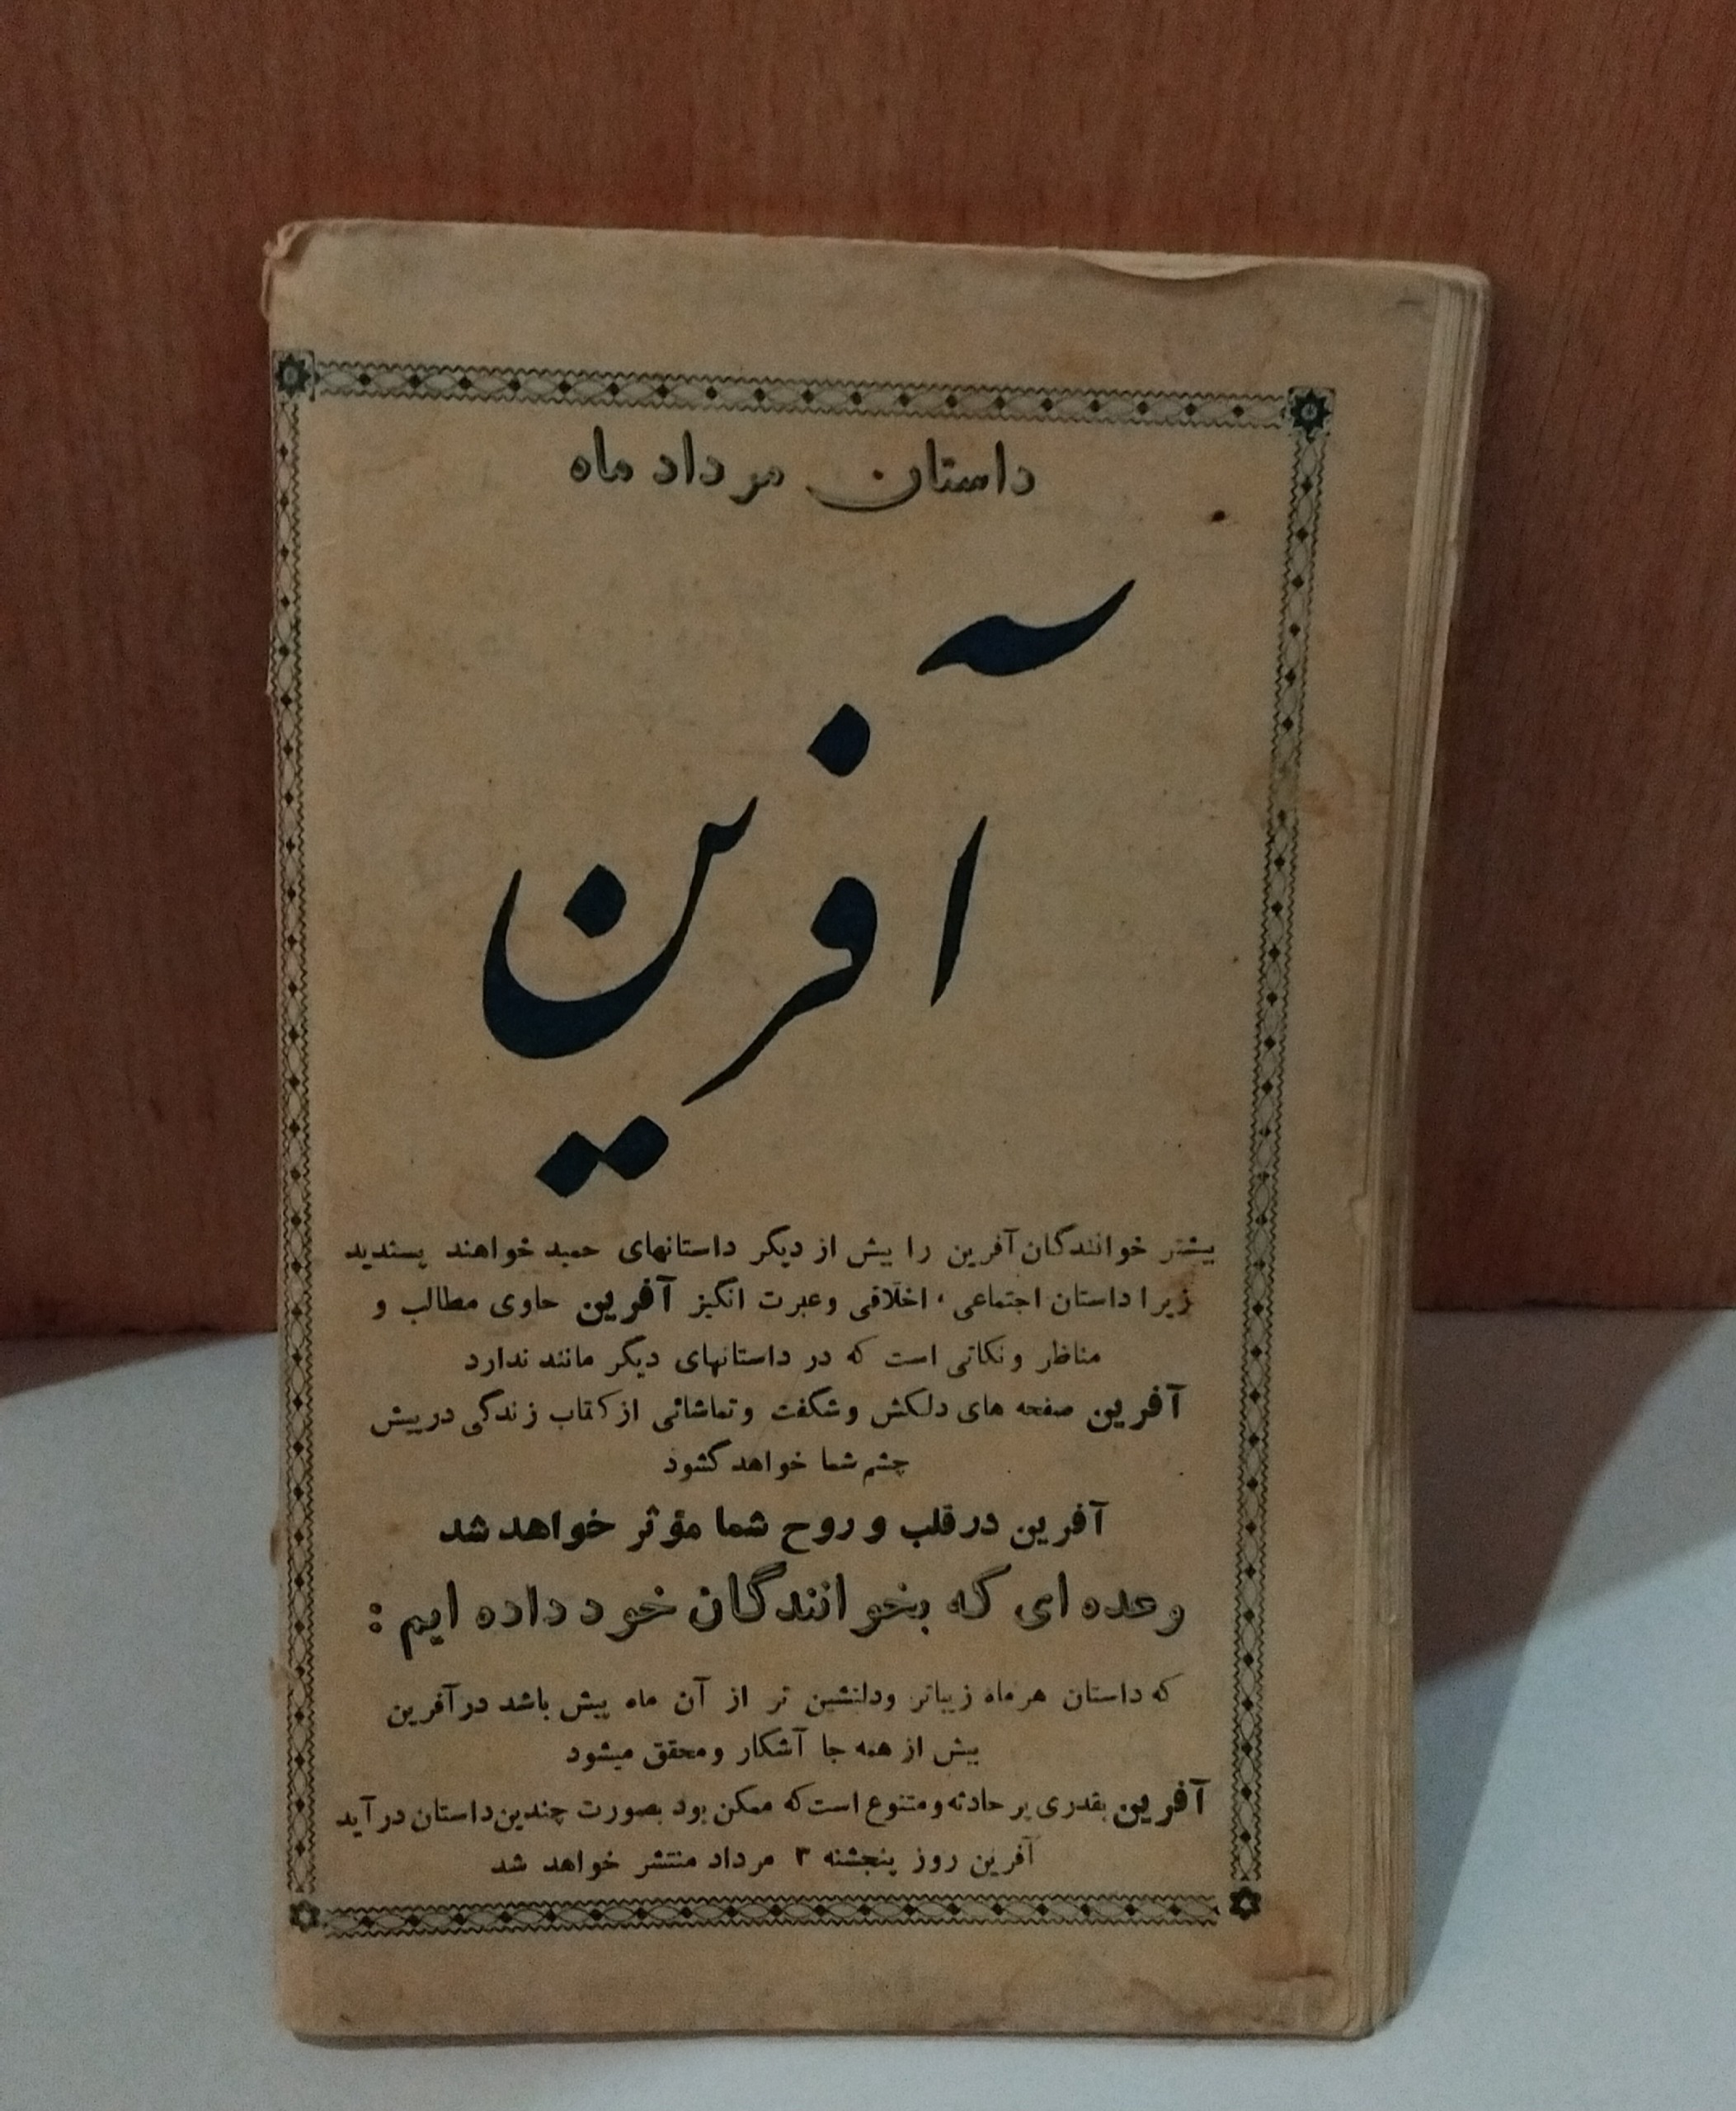 داستان مرداد ماه
آفرین
بیشتر خوانندگان آفرین را بیش از دیگر داستانهای حمید خواهند پسندید
زیرا داستان اجتماعی ، اخلاقی و عبرت انگیز آفرین حاوی مطالب و
مناظر و نکاتی است که در داستانهای دیگر مانند ندارد
آفرین صفحه های دلکش و شگفت و تماشائی از کتاب زندگی در پیش
چشم شما خواهد گشود
آفرین در قلب و روح شما مؤثر خواهد شد
وعده ای که بخوانندگان خود داده ایم :
که داستان هر ماه زیباتر و دلنشین تر از آن ماه پیش باشد در آفرین
بیش از همه جا آشکار و محقق میشود
آفرین بقدری پر حادثه و متنوع است که ممکن بود بصورت چندین داستان در آید
آفرین روز پنجشنبه ۳ مرداد منتشر خواهد شد